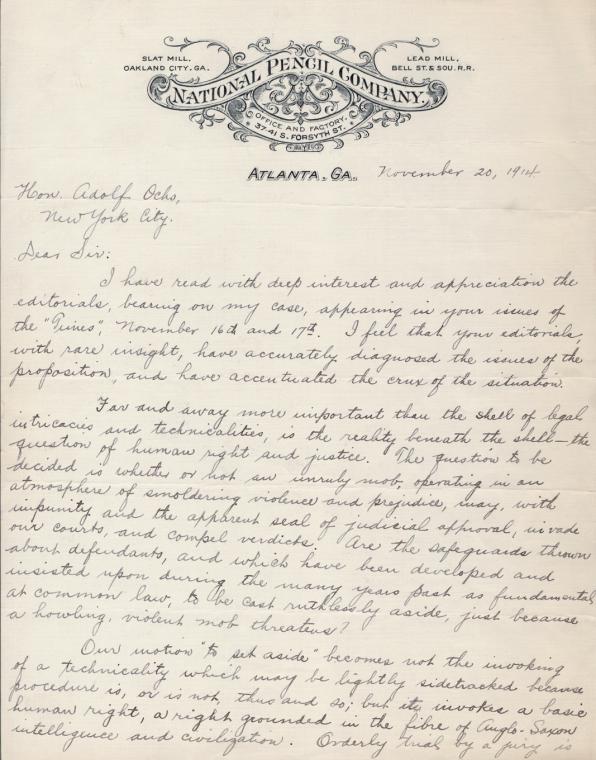 SLAT MILL,
OAKLAND CITY, GA.
LEAD MILL,
BELL ST. & SOU. R.R.
NATIONAL PENCIL COMPANY.
OFFICE AND FACTORY,
37-41 S. FORSYTH ST.
ATLANTA, GA. November 20, 1914
Hon. Adolf Ochs,
New York City.
Dear Sir:
I have read with deep interest and appreciation the
editorials, bearing on my case, appearing in your issues of
the "Times", November 16th and 17th. I feel that your editorials,
with rare insight, have accurately diagnosed the issues of the
proposition, and have accentuated the crux of the situation.
Far and away more important than the shell of legal
intricacies and technicalities, is the reality beneath the shell — the
question of human right and justice. The question to be
decided is whether or not an unruly mob, operating in an
atmosphere of smoldering violence and prejudice, may, with
impunity and the apparent seal of judicial approval, invade
our courts, and compel verdicts. Are the safeguards thrown
about defendants, and which have been developed and
insisted upon during the many years past as fundamental
at common law, to be cast ruthlessly aside, just because
a howling, violent mob threatens?
Our motion "to set aside" becomes not the invoking
of a technicality which may be lightly sidetracked because
procedure is, or is not, thus and so; but it invokes a basic
human right, a right grounded in the fibre of Anglo-Saxon
intelligence and civilization. Orderly trial by a jury is